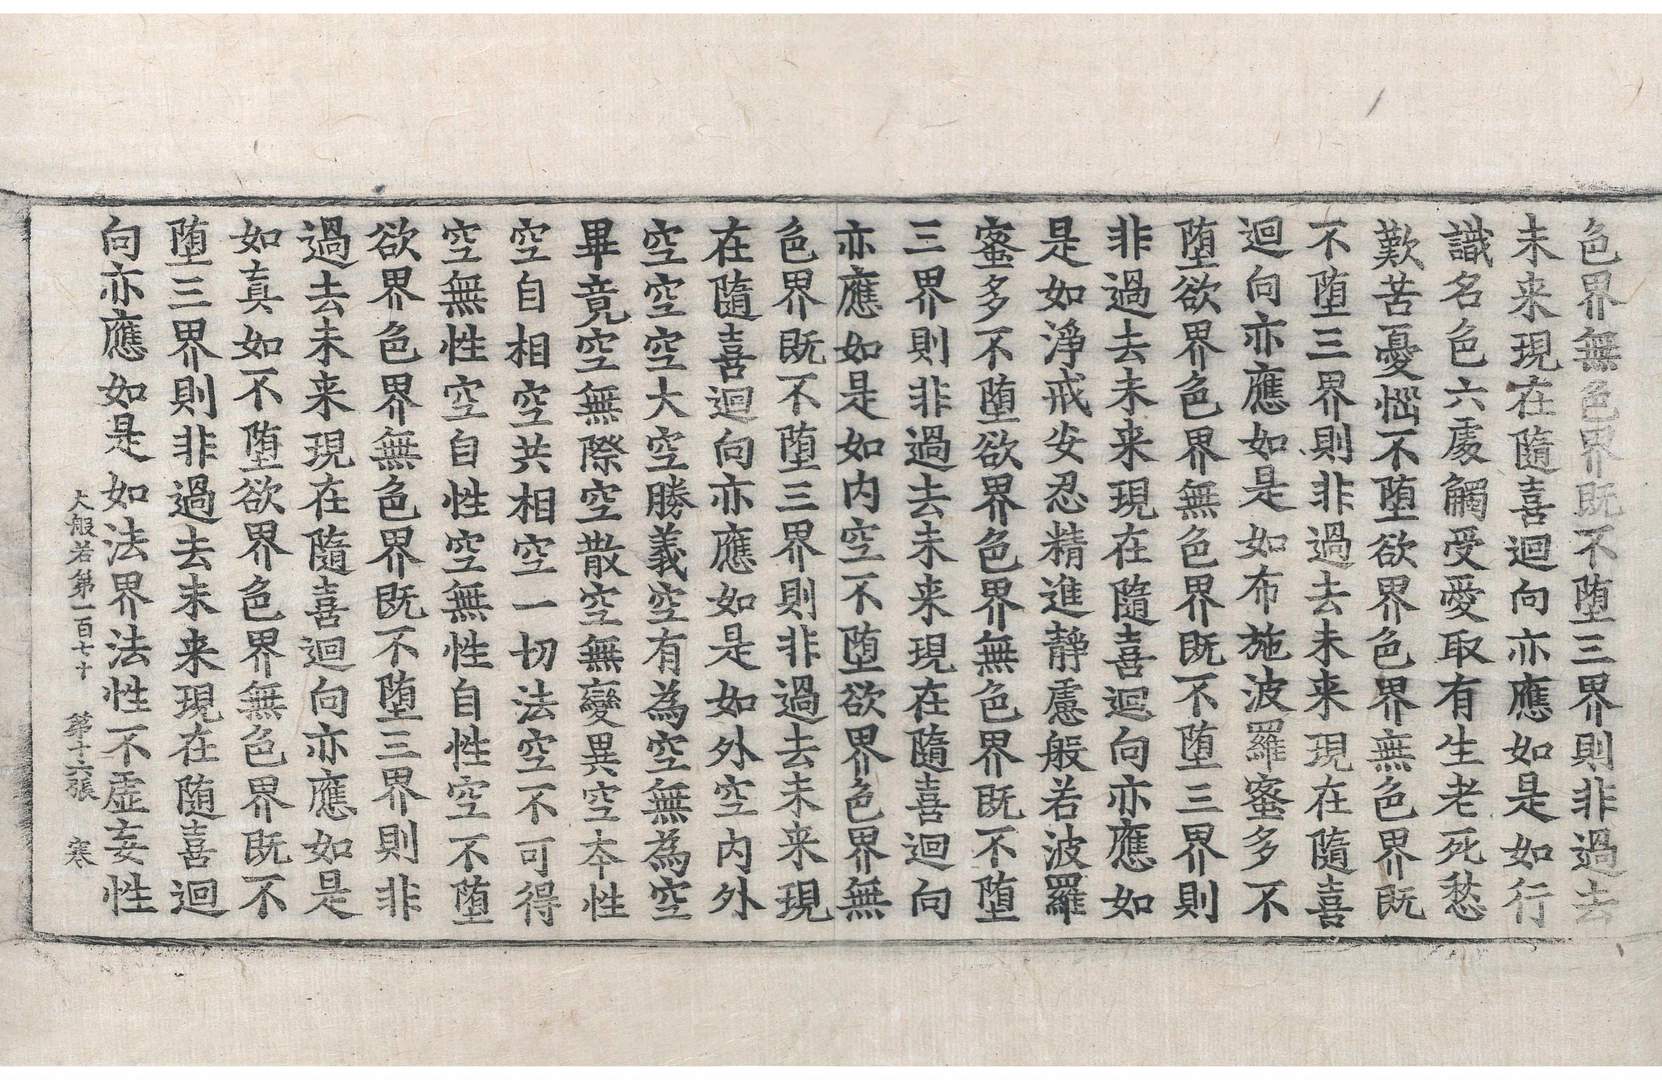 色界無色界既不堕三界則非過去
未来現在隨喜迴向亦應如是如行
識名色六處觸受愛取有生老死愁
歎苦憂惱不堕欲界色界無色界既
不堕三界則非過去未来現在隨喜
迴向亦應如是如布施波羅蜜多不
堕欲界色界無色界既不堕三界則
非過去未来現在隨喜迴向亦應如
是如淨戒安忍精進靜慮般若波羅
蜜多不堕欲界色界無色界既不堕
三界則非過去未来現在隨喜迴向
亦應如是如内空不堕欲界色界無
色界既不堕三界則非過去未来現
在隨喜迴向亦應如是如外空内外
空空空大空勝義空有為空無為空
畢竟空無際空散空無變異空本性
空自相空共相空一切法空不可得
空無性空自性空無性自性空不堕
欲界色界無色界既不堕三界則非
過去未来現在隨喜迴向亦應如是
如真如不堕欲界色界無色界既不
堕三界則非過去未来現在隨喜迴
向亦應如是如法界法性不虛妄性
大般若第一百七十 第十六張 寒